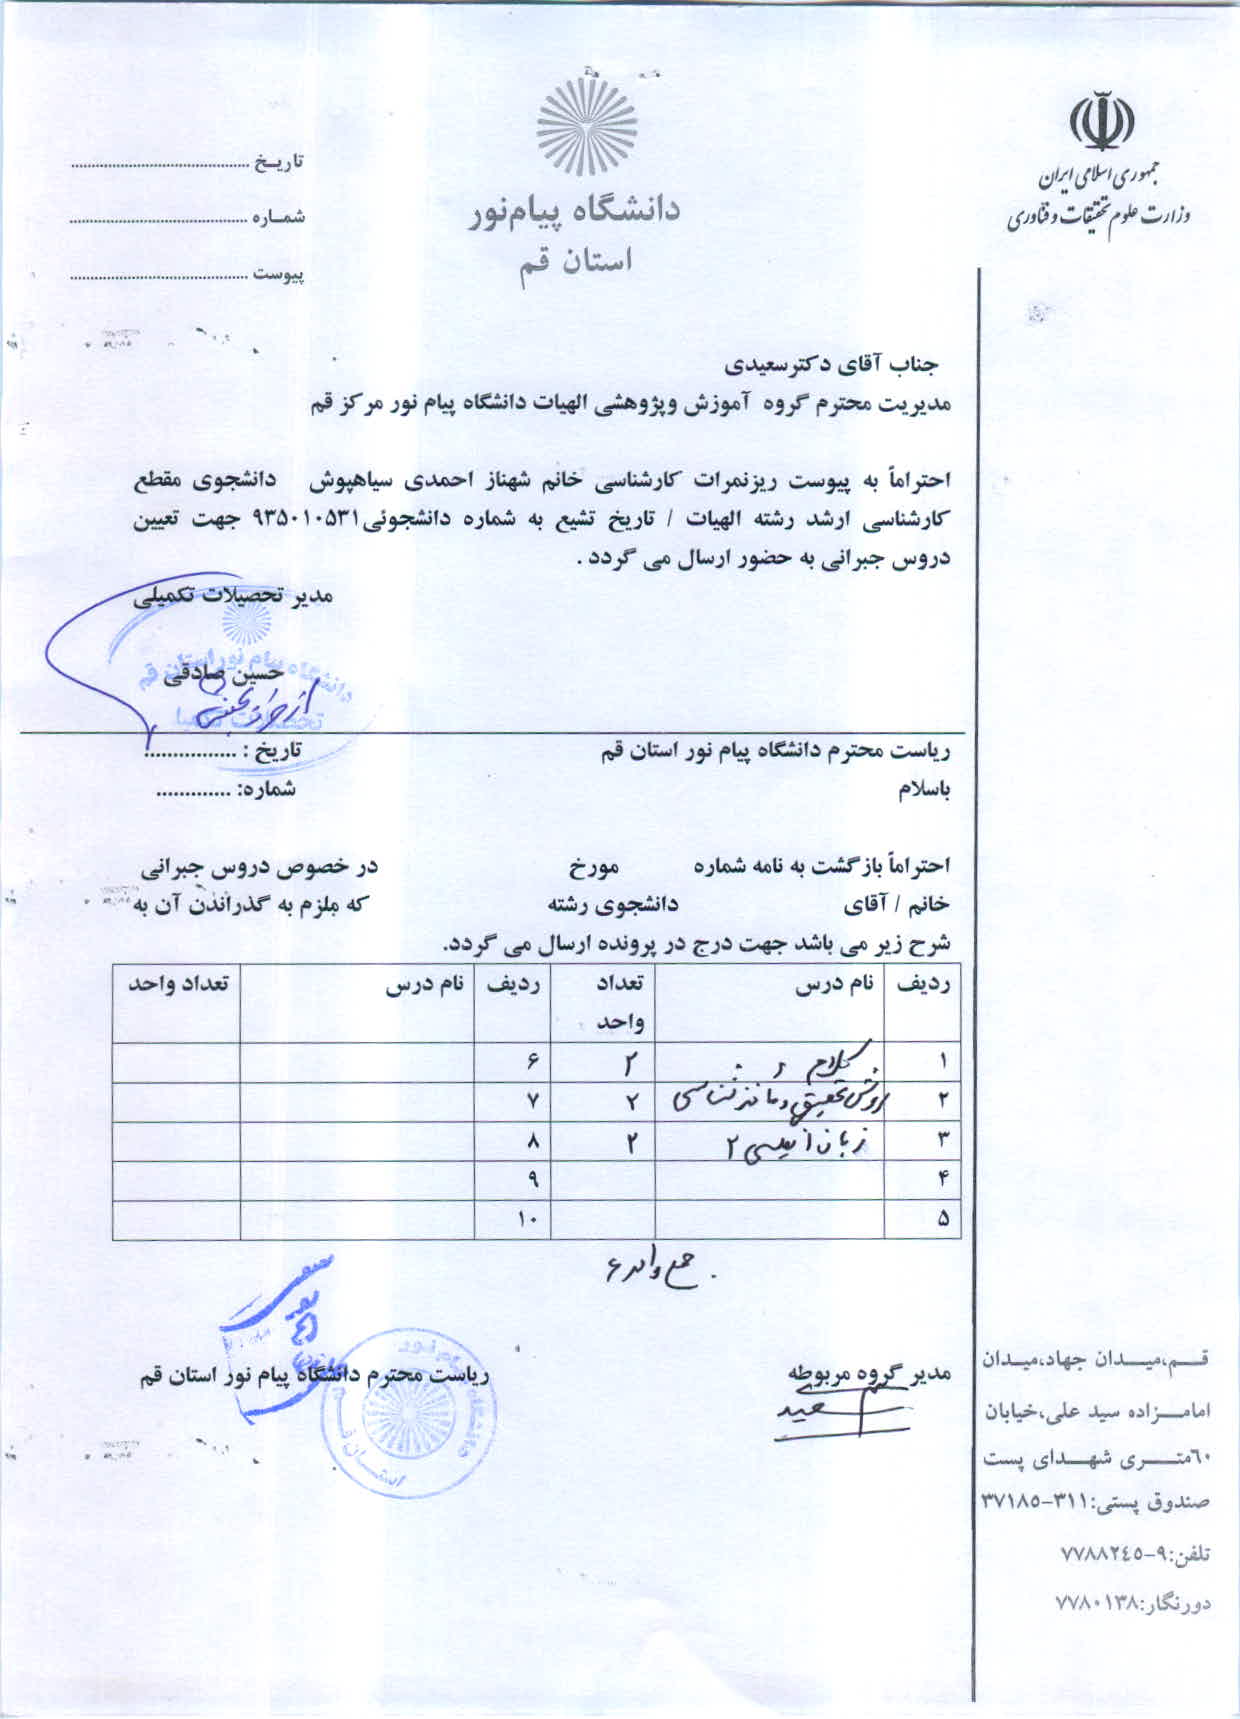 جمهوری اسلامی ایران
وزارت علوم تحقیقات و فناوری
دانشگاه پیام‌نور
استان قم
تاریخ ........................................
شماره ........................................
پیوست ........................................
جناب آقای دکترسعیدی
مدیریت محترم گروه آموزش وپژوهشی الهیات دانشگاه پیام نور مرکز قم
احتراماً به پیوست ریزنمرات کارشناسی خانم شهناز احمدی سیاهپوش دانشجوی مقطع
کارشناسی ارشد رشته الهیات / تاریخ تشیع به شماره دانشجوئی۹۳۵۰۱۰۵۳۱ جهت تعیین
دروس جبرانی به حضور ارسال می گردد .
مدیر تحصیلات تکمیلی
حسین صادقی
دانشگاه پیام نور استان قم
ریاست محترم دانشگاه پیام نور استان قم تاریخ : ................
باسلام شماره: .............
احتراماً بازگشت به نامه شماره مورخ در خصوص دروس جبرانی
خانم / آقای دانشجوی رشته که ملزم به گذراندن آن به
شرح زیر می باشد جهت درج در پرونده ارسال می گردد.
ردیف نام درس تعداد واحد ردیف نام درس تعداد واحد
۱ کلام ۲ ۶
۲ روش تحقیق و ماخذ شناسی ۲ ۷
۳ زبان انگلیسی ۲ ۲ ۸
۴ ۹
۵ ۱۰
جمع واحد ۶
مدیر گروه مربوطه ریاست محترم دانشگاه پیام نور استان قم
قم،میدان جهاد،میدان
امامزاده سید علی،خیابان
۶۰متری شهدای پست
صندوق پستی:۳۱۱-۳۷۱۸۵
تلفن:۹-۷۷۸۸۲٤٥
دورنگار:۷۷۸۰۱۳۸